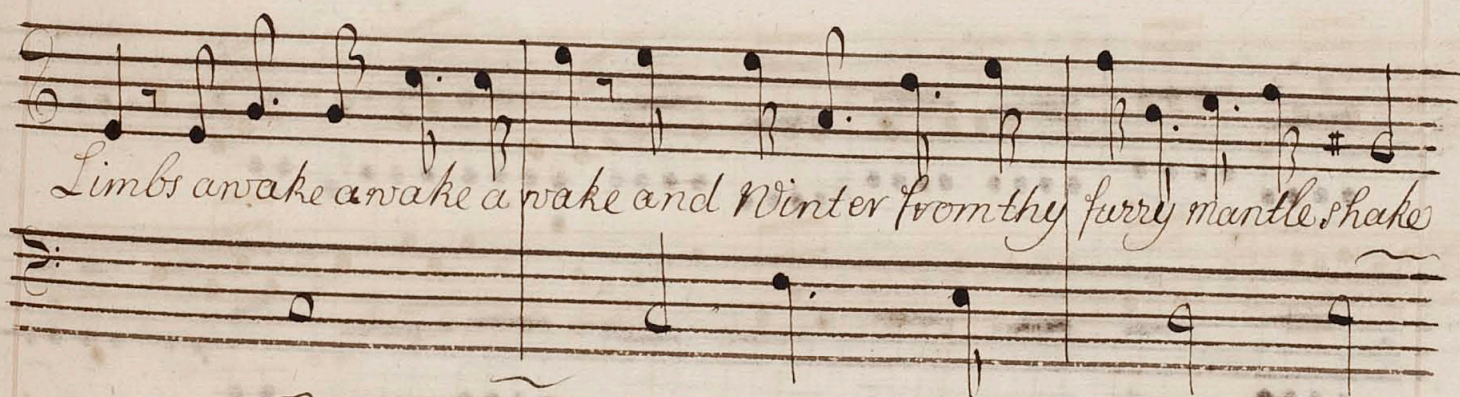 Limbs awake awake a wake and Winter from thy furry mantle shake